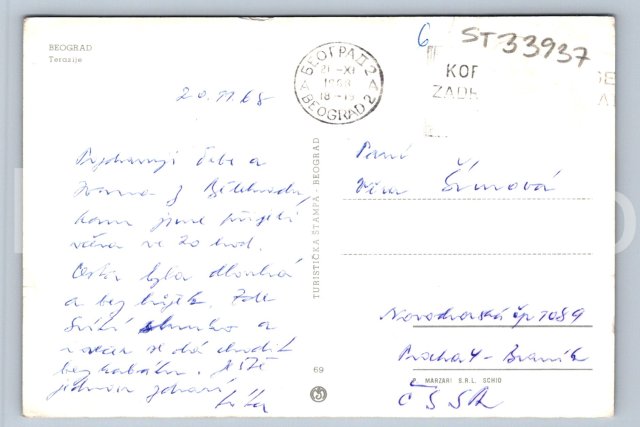 BEOGRAD
Terazije
6
ST33937
KOR
ZADR
БЕОГРАД 2
21.-XI
1968
18-19
BEOGRAD 2
20.11.68
Pozdravují Tebe a
Ivana z Bělehradu,
kam jsme přijeli
včera ve 20 hod.
Cesta byla dlouhá
a bez Zde
Svítí slunko a
se dá chodit
bez kabátu. Ještě
jednou zdraví
TURISTIČKA ŠTAMPA - BEOGRAD
69
Paní
Věra Šímová
Novodvorská čp 1089
Praha 4 - Braník
ČSSR
MARZARI S.R.L. SCHIO